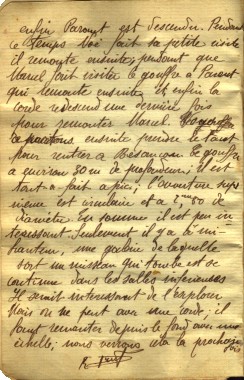 enfin Parout est descendu. Pendant
ce temps Noé fait sa petite visite
il remonte ensuite, pendant que
Marel fait visiter le gouffre à Parout
qui remonte ensuite, et enfin la
corde redescend une dernière fois
pour remonter Marel.
ensuite prendre le
pour rentrer à Besançon le gouffre
a environ 30 m de profondeur; il est
tout à fait à pic; l'ouverture supé
rieure est circulaire et a 2,m 50 de
diamètre. En somme il est peu in
téressant. Seulement il y a à mi-
hauteur, une galerie de laquelle
sort un ruisseau qui tombe et se
continue dans les salles inférieures
Il serait intéressant de l'explorer
Mais on ne peut avec une corde; il
faut remonter depuis le fond avec une
échelle; nous verrons cela la prochaine
fois